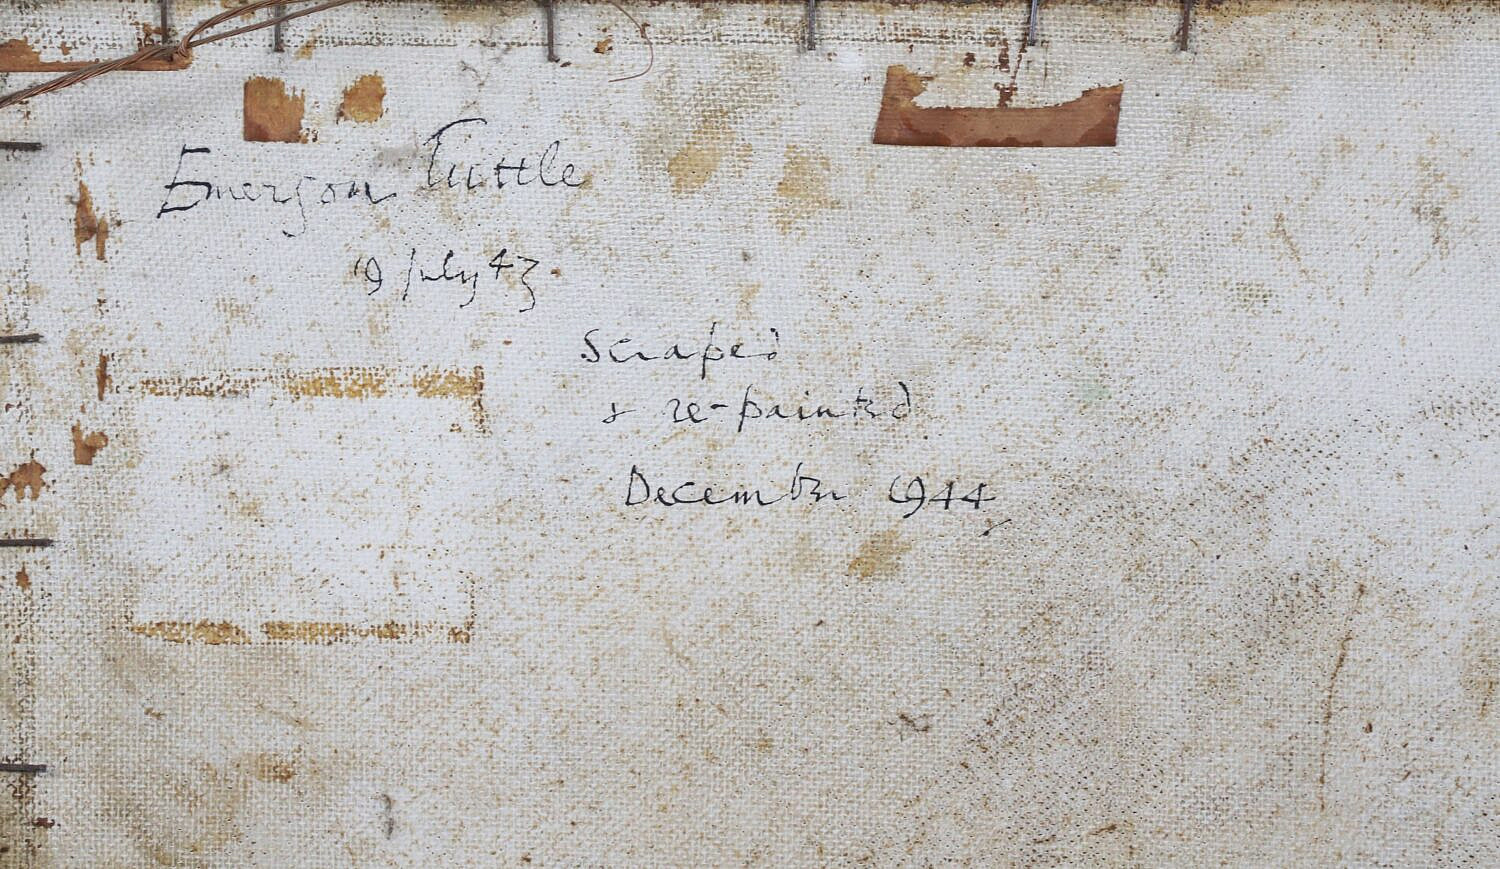 Emerson Tuttle
19 July 43
Scraped
& re-painted
December 1944